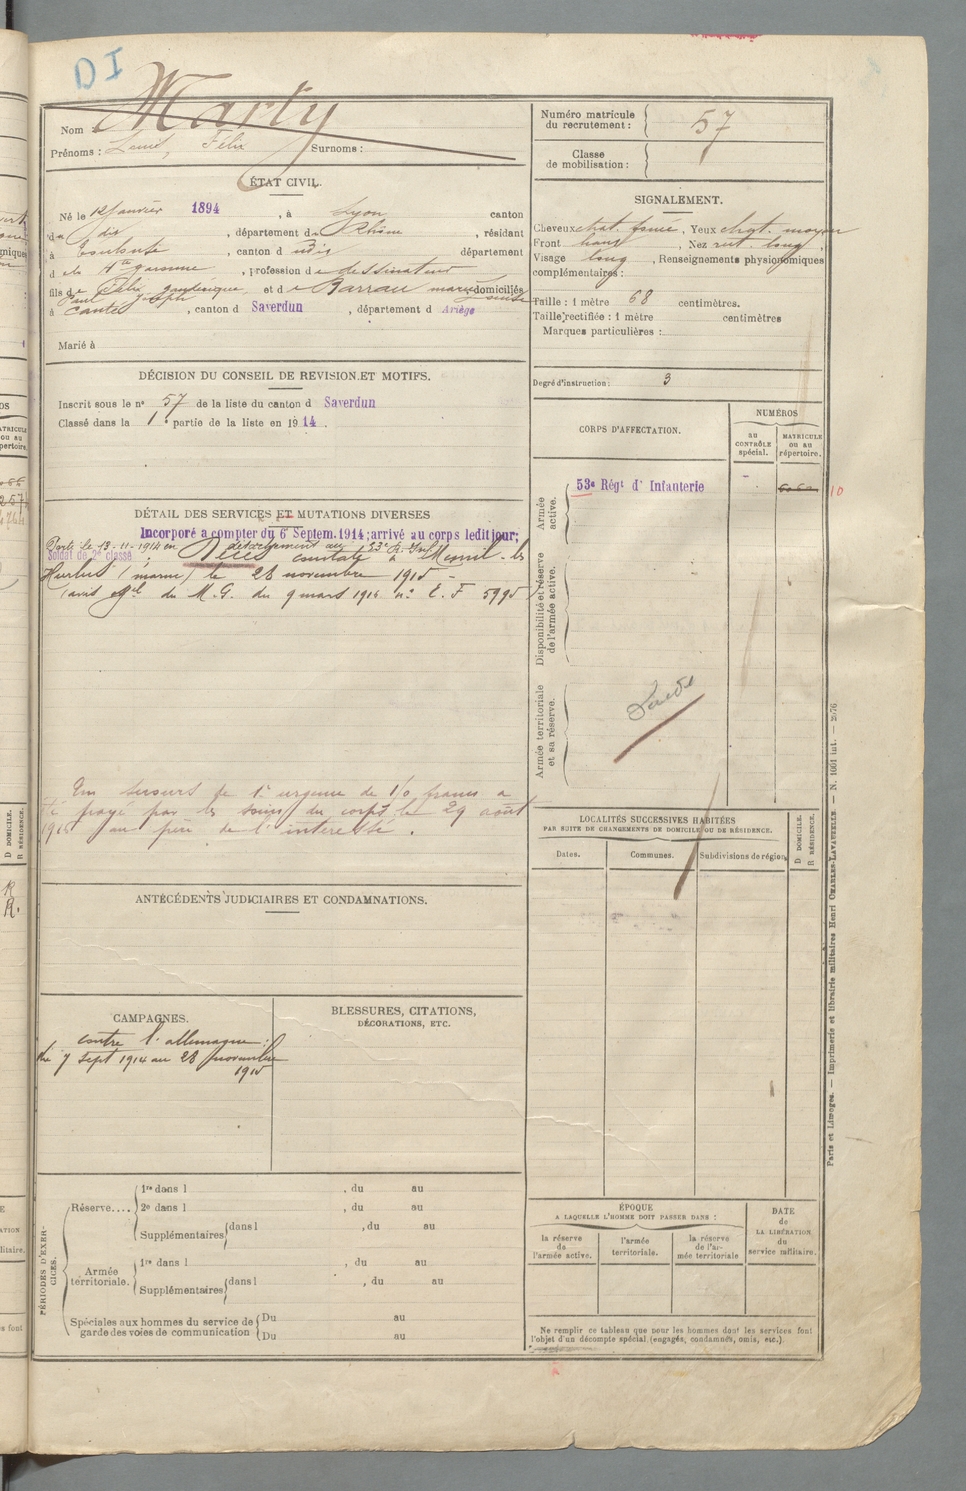 DI
Nom Marty
Prénoms : Louis, Félix Surnoms :
ÉTAT CIVIL.
Né le 12 Janvier 1894, à Lyon canton
du dit, département du Rhône, résidant
à Toulouse, canton d udis département
d e la Hte garonne, profession d e dessinateur
fils de Félix gaudérique et d e Barrau marie Louise domiciliés
Paul Joseph
à Canté, canton d Saverdun, département d Ariège
Marié à
DÉCISION DU CONSEIL DE REVISION ET MOTIFS.
Inscrit sous le nº 57 de la liste du canton d Saverdun
Classé dans la 1e partie de la liste en 1914.
DÉTAIL DES SERVICES ET MUTATIONS DIVERSES
Incorporé a compter du 6 Septem. 1914; arrivé au corps leditjour;
Parti le 13-11-1914 en détachement au 23e R. Inf.
Soldat de 2e classe. Décès constaté à Mesnil-les
Hurlus (marne) le 28 novembre 1915 -
(avis du M.G. du 9 mars 1916 nº E. F 5995)
Un secours de 1e urgence de 150 francs a
été payé par les soins du corps le 29 août
1916 au père de l'intéressé.
ANTÉCÉDENTS JUDICIAIRES ET CONDAMNATIONS.
CAMPAGNES.
contre l'allemagne :
du 7 Sept 1914 au 28 novembre
1915
BLESSURES, CITATIONS,
DÉCORATIONS, ETC.
PÉRIODES D'EXERCICES.
Réserve....
1re dans l , du au
2e dans l , du au
Supplémentaires dans l , du au
Armée territoriale.
1re dans l , du au
Supplémentaires dans l , du au
Spéciales aux hommes du service de garde des voies de communication
Du au
Du au
Numéro matricule du recrutement : 57
Classe de mobilisation :
SIGNALEMENT.
Cheveux chat. foncé, Yeux chat. moyen
Front haut, Nez rect. long,
Visage long, Renseignements physionomiques
complémentaires :
Taille : 1 mètre 68 centimètres.
Taille rectifiée : 1 mètre centimètres
Marques particulières :
Degré d'instruction : 3
CORPS D'AFFECTATION.
NUMÉROS
au CONTRÔLE spécial.
MATRICULE ou au répertoire.
Armée active.
53e Régt d' Infanterie
10
Disponibilité et réserve de l'armée active.
Armée territoriale et sa réserve.
LOCALITÉS SUCCESSIVES HABITÉES
PAR SUITE DE CHANGEMENTS DE DOMICILE OU DE RÉSIDENCE.
Dates.
Communes.
Subdivisions de région
D DOMICILE.
R RÉSIDENCE.
ÉPOQUE
A LAQUELLE L'HOMME DOIT PASSER DANS :
la réserve de l'armée active.
l'armée territoriale.
la réserve de l'armée territoriale
DATE de LA LIBÉRATION du service militaire.
Ne remplir ce tableau que pour les hommes dont les services font
l'objet d'un décompte spécial (engagés, condamnés, omis, etc.)
Paris et Limoges. — Imprimerie et librairie militaires Henri CHARLES-LAVAUZELLE. — N. 1001 int. — 2576